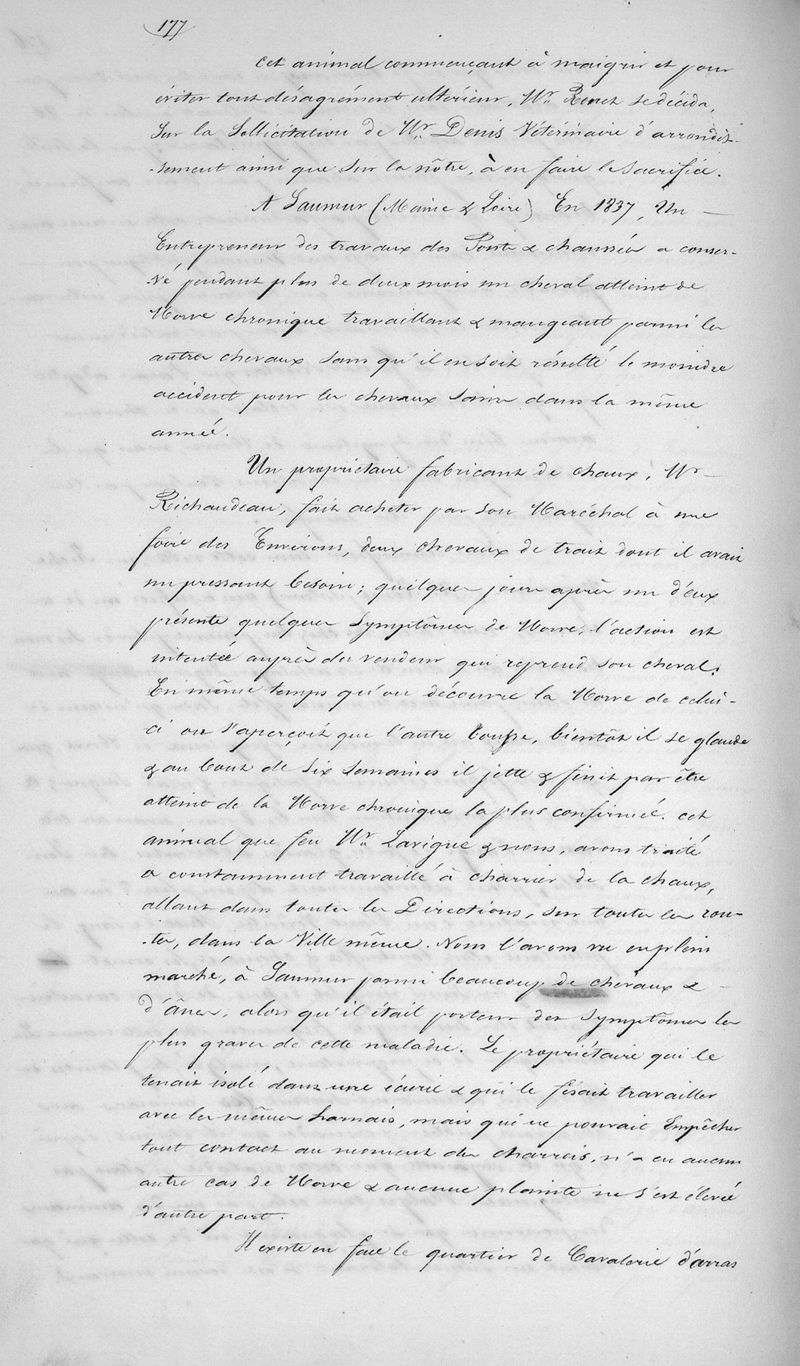 177
cet animal commençant à maigrir et pour
éviter tout désagrément ultérieur, Mr. Renet se décida,
sur la sollicitation de Mr. Denis Vétérinaire d'arrondis-
-sement ainsi que sur la nôtre, à en faire le sacrifice.
A Saumur (Maine & Loire) En 1837, Un —
Entrepreneur des travaux des Ponts & chaussées a conser-
-vé pendant plus de deux mois un cheval atteint de
Morve chronique travaillant & mangeant parmi les
autres chevaux sans qu'il en soit résulté le moindre
accident pour les chevaux sains dans la même
année.
Un propriétaire fabricant de chaux, Mr —
Richaudeau, fait acheter par son Maréchal à une
foire des Environs, deux chevaux de trait dont il avait
un pressant besoin; quelques jours après un d'eux
présente quelques symptômes de Morve, l'action est
intentée auprès du vendeur qui reprend son cheval.
En même temps qu'on découvre la Morve de celui-
ci on s'aperçoit que l'autre tousse, bientôt il se glande
& au bout de six semaines il jette & finit par être
atteint de la Morve chronique la plus confirmée. cet
animal que feu Mr. Lavigne & nous, avons traité
a constamment travaillé à charrier de la chaux,
allant dans toutes les Directions, sur toutes les rou-
-tes, dans la Ville même. Nous l'avons vu en plein
marché, à Saumur parmi beaucoup de chevaux & -
d'ânes, alors qu'il était porteur des symptômes les
plus graves de cette maladie. Le propriétaire qui le
tenait isolé dans une écurie & qui le fesait travailler
avec les mêmes harnais, mais qui ne pouvait Empêcher
tout contact au moment des charrois, n'a eu aucun
autre cas de Morve & aucune plainte ne s'est élevée
d'autre part.
Il existe en face le quartier de Cavalerie d'arras